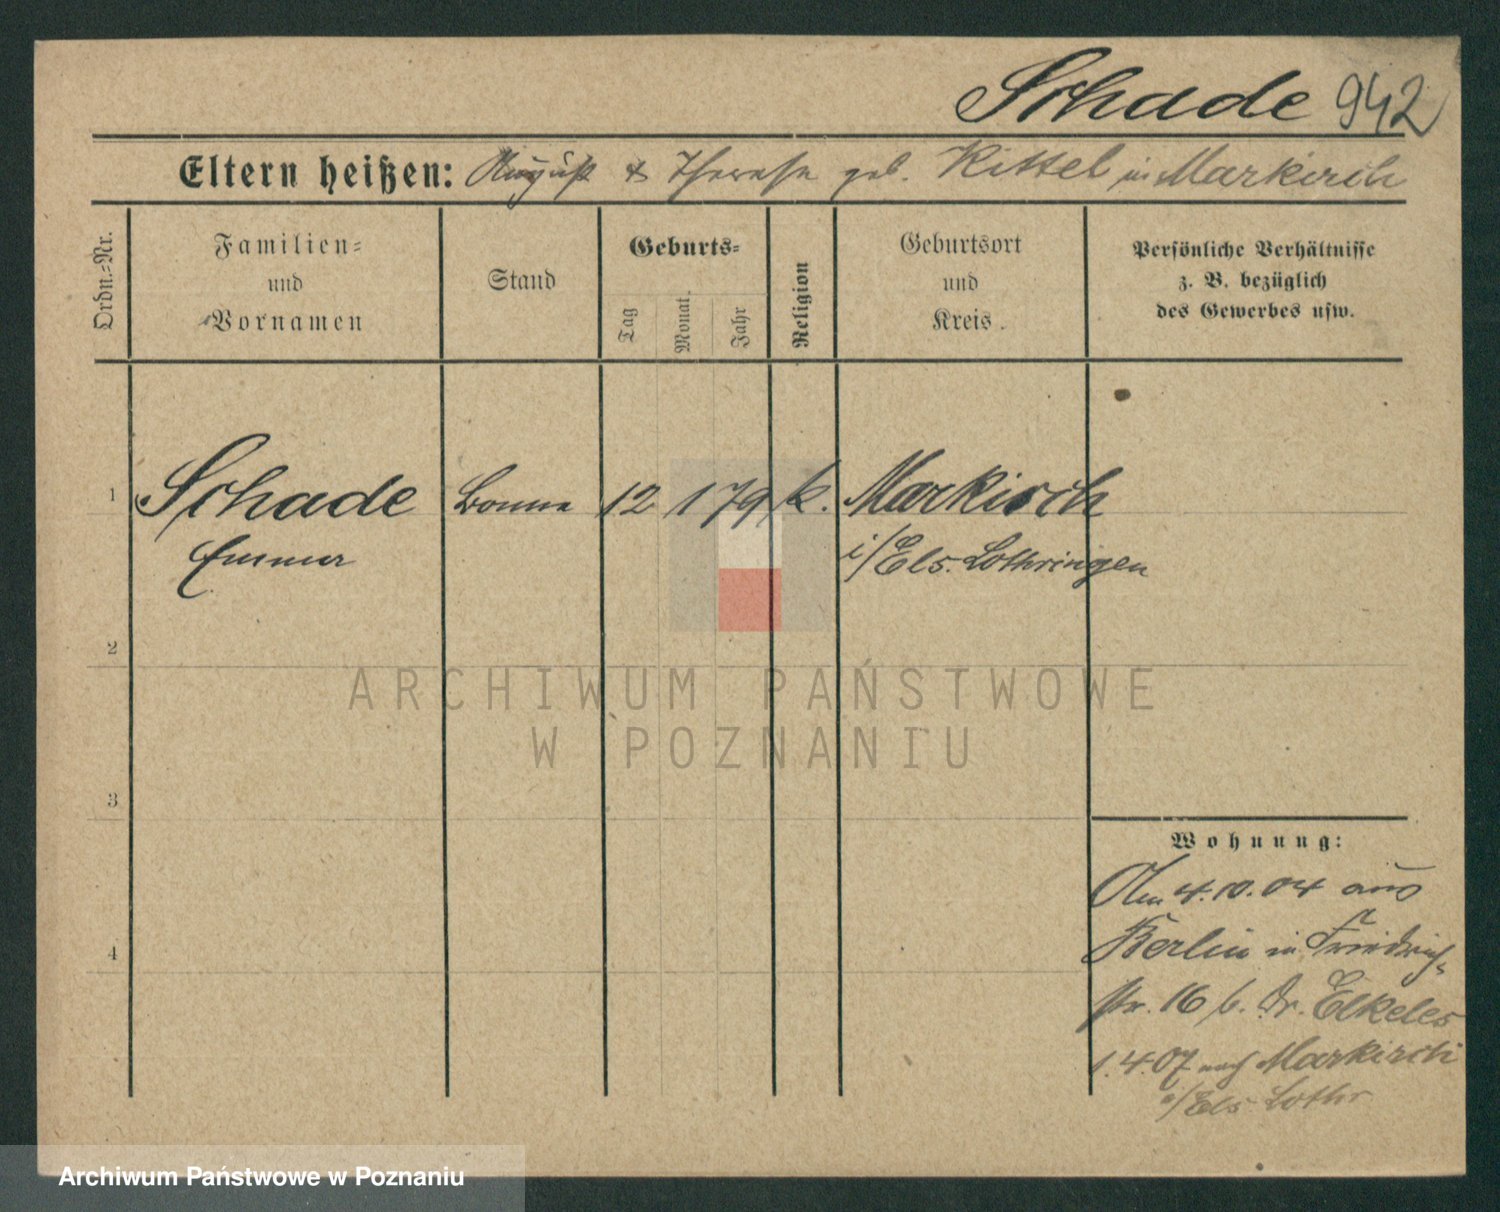 Schade 942
Eltern heißen: August & Therese geb. Kittel in Markirch
Ordn.=Nr.
Familien=
und
Vornamen
Stand
Geburts=
Tag
Monat.
Jahr
Religion
Geburtsort
und
Kreis.
Persönliche Verhältnisse
z. B. bezüglich
des Gewerbes usw.
1 Schade Bonne 12 1 79 k. Markirch
Emma i/Els. Lothringen
2
3
4
ARCHIWUM PAŃSTWOWE
W POZNANIU
Wohnung:
Am 4.10.04 aus
Berlin in Friedrich=
str. 16 b. Dr. Elkeles
1.4.07 nach Markirch
i/Els Lothr
Archiwum Państwowe w Poznaniu